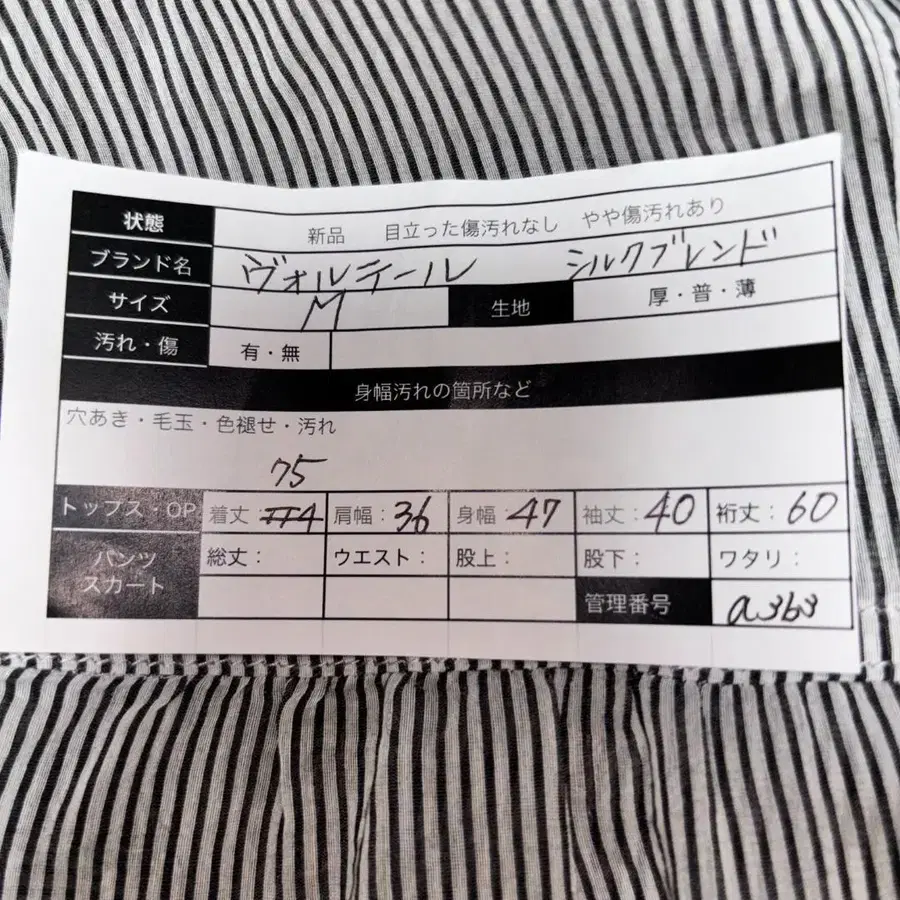 状態 新品 目立った傷汚れなし やや傷汚れあり
ブランド名 ヴォルテール シルクブレンド
サイズ M 生地 厚・普・薄
汚れ・傷 有・無
身幅汚れの箇所など
穴あき・毛玉・色褪せ・汚れ
75
トップス・OP 着丈: 肩幅:36 身幅:47 袖丈:40 裄丈:60
パンツ スカート 総丈: ウエスト: 股上: 股下: ワタリ:
管理番号 a3b3